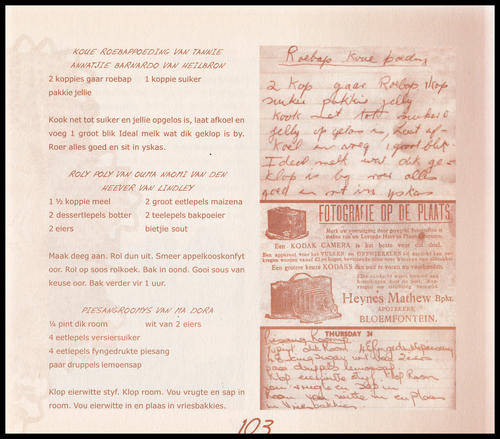 KOUE ROEBAPPOEDING VAN TANNIE
ANNATJIE BARNARDO VAN HEILBRON
2 koppies gaar roebap 1 koppie suiker
pakkie jellie
Kook net tot suiker en jellie opgelos is, laat afkoel en
voeg 1 groot blik Ideal melk wat dik geklop is by.
Roer alles goed en sit in yskas.
ROLY POLY VAN OUMA NAOMI VAN DEN
HEEVER VAN LINDLEY
1 ½ koppie meel 2 groot eetlepels maizena
2 dessertlepels botter 2 teelepels bakpoeier
2 eiers bietjie sout
Maak deeg aan. Rol dun uit. Smeer appelkooskonfyt
oor. Rol op soos rolkoek. Bak in oond. Gooi sous van
keuse oor. Bak verder vir 1 uur.
PIESANGROOMYS VAN MA DORA
¼ pint dik room wit van 2 eiers
4 eetlepels versiersuiker
4 eetlepels fyngedrukte piesang
paar druppels lemoensap
Klop eierwitte styf. Klop room. Vou vrugte en sap in
room. Vou eierwitte in en plaas in vriesbakkies.
Roebap Koue poeding
2 Kop gaar Roebap 1 Kop
suiker pakkie jelly
Kook net tot suiker &
jelly opgelos is, laat af-
koel en voeg 1 groot blik
Ideal melk wat dik ge-
klop is by roer alles
goed en sit in yskas
FOTOGRAFIE OP DE PLAATS
Een KODAK CAMERA is het beste voor dit doel.
Heynes Mathew Bpkt.
APOTHEKERS
BLOEMFONTEIN.
THURSDAY 24
paar druppels lemoensap
Klop eierwitte styf, klop Room
103